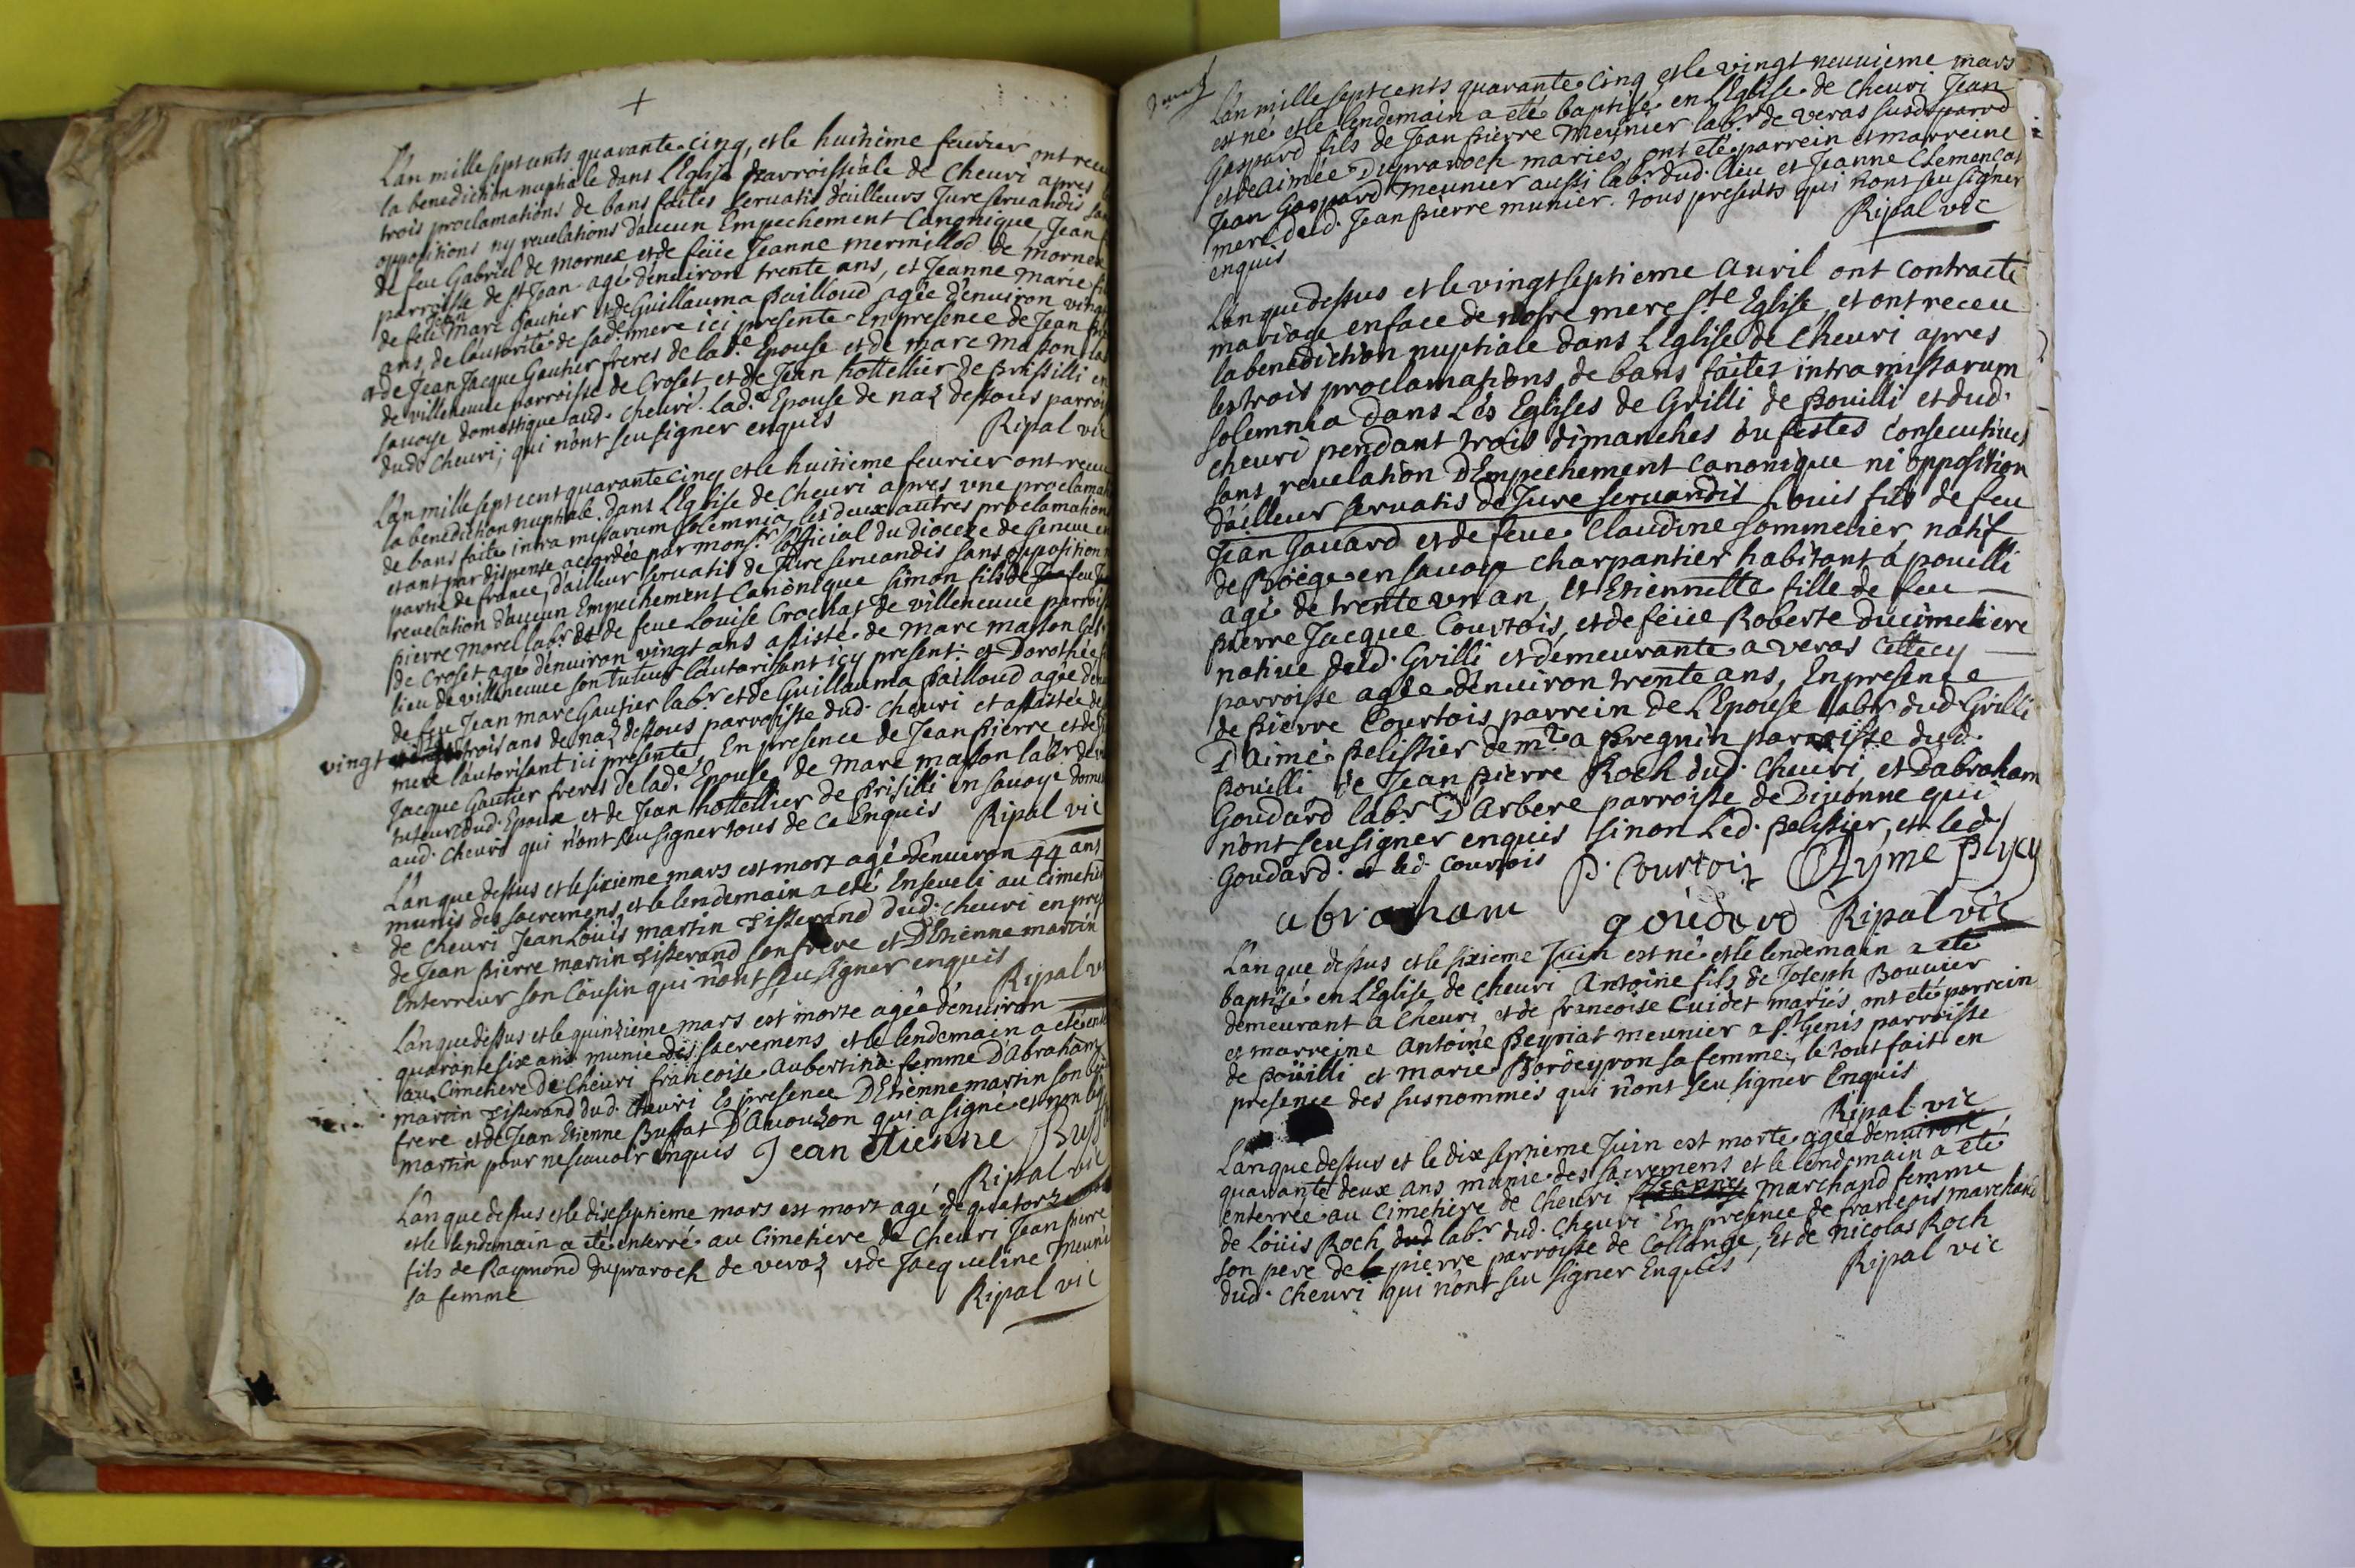 L'an mille sept cents quarante cinq, et le huitième feuvrier ont receu
la benediction nuptiale dans l'Eglise parroissiale de Cheuri apres
trois proclamations de bans faites seruatis d'ailleurs Jure seruandis sans
oppositions ny reuelations d'aucun Empechement Canonique, Jean
de feu Gabriel de mornex et de feüe Jeanne mermillod de mornex
parroisse de st Jean agé d'enuiron trente ans, et Jeanne Marie
de feu Jean Marc Gautier et de Guillauma Pailloud agée d'enuiron vingt
ans, de l'autorité de sad.e mere ici presente. En presence de Jean
et de Jean Jacque Gautier freres de lad.e Epouse et de marc masson
de villeneuue parroisse de Croset, et de Jean hottellier de Brissilli en
sauoye domestique aud. cheuri. lad.e Epouse de naz dessous parroi
dud. Cheuri; qui n'ont seu signer enquis
Ripal vic
L'an mille sept cent quarante cinq et le huitieme feurier ont receu
la benediction nuptiale dans l'Eglise de Cheuri apres vne proclamation
de bans faite intra missarum solemnia, les deux autres proclamations
etant par dispense accordée par mons.r l'official du Dioceze de Geneue en
partie de france, d'ailleur seruatis de Jure seruandis sans opposition
reuelation d'aucun Empechement Canonique Simon fils de feu
pierre Morel lab.r et de feue Louise Crochat de villeneuue parroisse
de Croset agé d'enuiron vingt ans assisté de Marc masson
lieu de villeneuue son tuteur l'autorisant icy present. et Dorothée
de feu Jean marc Gautier lab.r et de Guillauma Pailloud agée d'en
vingt trois ans de naz dessous parroisse dud. cheuri et assistée de
mere l'autorisant ici presente, En presence de Jean Pierre et de
Jacque Gautier freres de lad.e Epouse, de Marc masson lab.r de
tuteur dud. Epoux et de Jean hottellier de Brisilli en sauoye domes
aud. Cheuri qui n'ont seu signer tous de ce Enquis
Ripal vic
L'an que dessus et le sixieme mars est mort agé d'enuiron 44 ans
munis des sacremens, et le lendemain a eté Enseueli au Cimetiere
de Cheuri Jean Louis martin Tisserand dud. cheuri en pres
de Jean pierre martin Tisserand son frere et D'Etienne martin
Enterreur son Cousin qui n'ont seu signer enquis
Ripal vic
L'an que dessus et le quinzieme mars est morte agée d'enuiron
quarante six ans munie des sacremens, et le lendemain a eté
au Cimetiere de Cheuri francoise Aubertina femme D'Abraham
martin Tisserand dud. Cheuri En presence D'Etienne martin son
frere et de Jean Etienne Buffat D'Auouzon qui a signé et non
martin pour ne scauoir enquis Jean Etienne Buff
Ripal vic
L'an que dessus et le dixseptieme mars est mort agé de quatorze
et le lendemain a eté enterré au Cimetiere de Cheuri Jean pierre
fils de Raymond Dupraroch de veraz et de Jacqueline Meuni
sa femme
Ripal vic
L'an mille sept cents quarante cinq et le vingt neuuieme mars
est né et le lendemain a eté baptisé en l'Eglise de Cheuri Jean
Gaspard fils de Jean pierre Meunier lab.r de veras susd.
et de Aimée Dupraroch mariés, ont eté parrein et marreine
Jean Gaspard Meunier aussi lab.r dud. lieu et Jeanne Clemençat
mere dud. Jean pierre munier. tous presents qui n'ont seu signer
enquis
Ripal vic
L'an que dessus et le vingt septieme auril ont contracté
mariage en face de nostre mere s.te Eglise, et ont receu
la benediction nuptiale dans l'Eglise de Cheuri apres
les trois proclamations de bans faites intra missarum
solemnia dans Les Eglises de Grilli de Pouilli et dud.
cheuri pendant trois dimanches ou festes consecutiues
sans reuelation d'Empechement canonique ni opposition
d'ailleur seruatis de Jure seruandis Louis fils de feu
Jean Gauard et de feue Claudine Sommelier, natif
de Boëge en sauoye charpantier habitant à pouilli
agé de trente vn an, et Etiennette fille de feu
pierre Jacque Courtois, et de feüe Roberte Ducimetiere
natiue dud. Grilli et demeurante a veras Cettecy
parroisse agée d'enuiron trente ans, En presence
de pierre Courtois parrein de l'Epouse lab.r dud. Grilli
D'aimé pelissier dem.t a Pregnin parroisse dud.
Pouilli de Jean pierre Roch dud. cheuri, et D'abraham
Goudard lab.r D'Arbere parroisse de Diuonne qui
n'ont seu signer enquis sinon led. pelissier, et led.
Goudard. et led. courtois P. Courtois Ayme
abraham goudard Ripal vic
L'an que dessus et le sixieme Juin est né et le lendemain a eté
baptisé en l'Eglise de Cheuri Antoine fils de Joseph Bouuier
demeurant a Cheuri et de francoise Cuidet mariés, ont eté parrein
et marreine Antoine Peyriat meunier a s.t Genis parroisse
de Poüilli et marie Bordeyron sa femme, le tout fait en
presence des susnommés qui n'ont seu signer Enquis
Ripal vic
L'an que dessus et le dix septieme Juin est morte agée d'enuiron
quarante deux ans munie des sacremens et le lendemain a eté
enterrée au Cimetiere de Cheuri marchand femme
de Loüis Roch lab.r dud. Cheuri. En presence de francois marchand
son pere de la pierre parroisse de Collange, Et de nicolas Roch
dud. Cheuri qui n'ont seu signer Enquis
Ripal vic